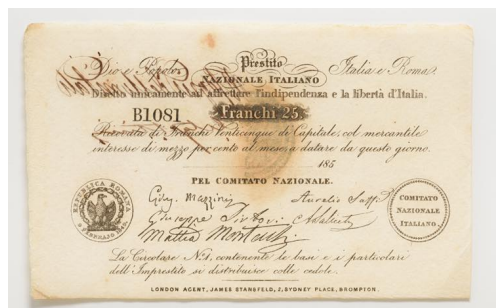 Dio e Popolo. Prestito Italia e Roma.
NAZIONALE ITALIANO
Diretto unicamente ad affrettare l'indipendenza e la libertà d'Italia.
B1081 Franchi 25.
Ricevuta di Franchi Venticinque di Capitale, col mercantile
interesse di mezzo per cento al mese, a datare da questo giorno.
185
PEL COMITATO NAZIONALE.
Gius. Mazzini Aurelio Saffi
Giuseppe Sirtori
Mattia Montecchi
REPUBBLICA ROMANA
9 FEBBRAJO
COMITATO
NAZIONALE
ITALIANO
La Circolare No. 1, contenente le basi e i particolari
dell'Imprestito si distribuisce colle cedole.
LONDON AGENT, JAMES STANSFELD, 2, SYDNEY PLACE, BROMPTON.